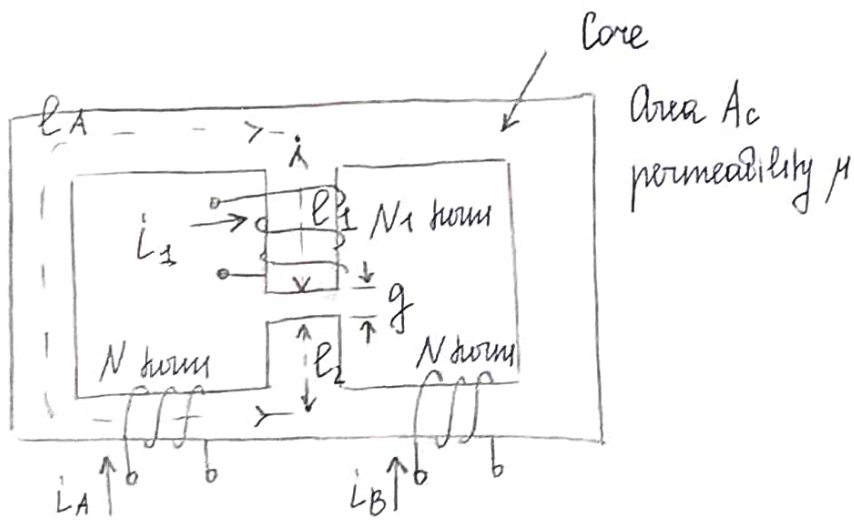 Core
Area Ac
permeability μ
lA
i1
l1
N1 turn
g
N turn
l2
N turn
iA
iB